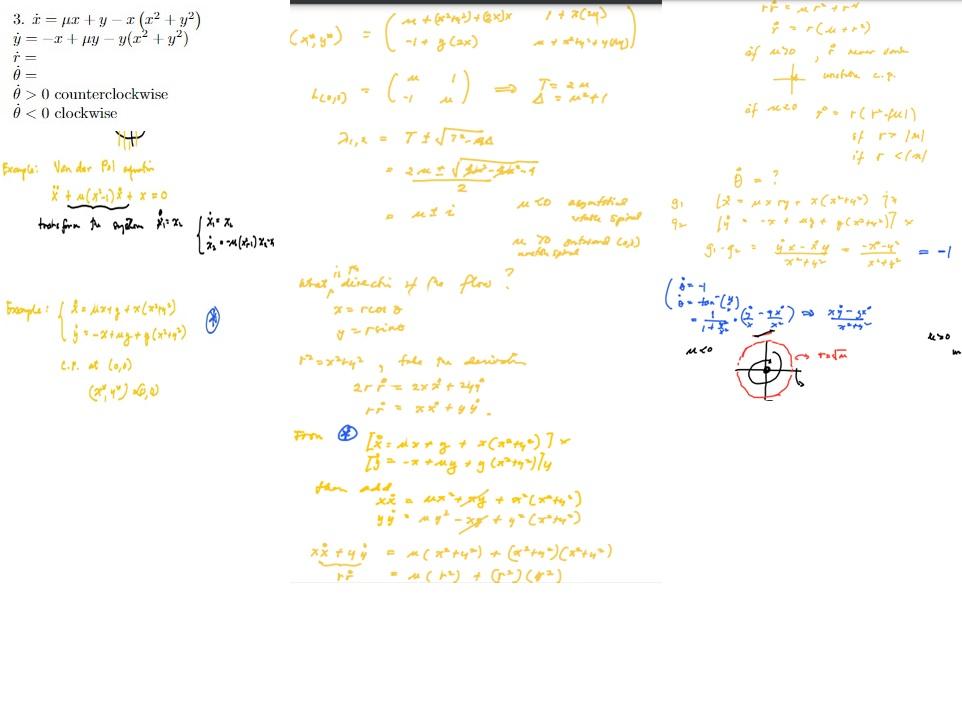 3. ẋ = μx + y − x (x² + y²)
ẏ = −x + μy − y(x² + y²)
ṙ =
θ̇ =
θ̇ > 0 counterclockwise
θ̇ < 0 clockwise
Example: Van der Pol equation
ẍ + μ(x²-1)ẋ + x = 0
transform the system ẋ₁ = x₂ { ẋ₁ = x₂
ẋ₂ = -μ(x₁²-1)x₂-x₁
Example: { ẋ = μx+y + x(x²+y²)
ẏ = -x+μy + y(x²+y²)
C.P. at (0,0)
(x*, y*) = (0,0)
(x*, y*) = ( μ + (x²+y²) + (2x)x 1 + x(2y)
-1 + y(2x) μ + x²+y² + y(2y) )
L(0,0) = ( μ 1 ⟹ T = 2μ
-1 μ ) Δ = μ²+1
λ₁,₂ = T ± √T²-4Δ
= 2μ ± √4μ²-4μ²-4
2
= μ ± i
μ<0 asymptotical
stable spiral
μ>0 outward (0,0)
unstable spiral
What is the direction of the flow?
x = r cos θ
y = r sin θ
r² = x²+y², take the derivative
2rṙ = 2xẋ + 2yẏ
rṙ = xẋ + yẏ.
From ⊛ [ẋ = μx + y + x(x²+y²)] x
[ẏ = -x + μy + y(x²+y²)] y
then add
xẋ = μx² + xy + x²(x²+y²)
yẏ = μy² - xy + y²(x²+y²)
xẋ + yẏ = μ(x²+y²) + (x²+y²)(x²+y²)
rṙ = μ(r²) + (r²)(r²)
rṙ = μr² + r⁴
ṙ = r(μ + r²)
if μ>0, ṙ never
unstable c.p.
if μ<0 ṙ = r(r²-|μ|)
if r > |μ|
if r < |μ|
θ̇ = ?
g₁ [ẋ = μx + y + x(x²+y²)] y
g₂ [ẏ = -x + μy + y(x²+y²)] x
g₁-g₂ = ẏx - ẋy / x²+y² = -x²-y² / x²+y² = -1
( θ̇ = -1
θ = tan⁻¹(y/x)
= 1 / 1+y²/x² · (ẏ/x - yẋ/x²) ⟹ xẏ - yẋ / x²+y²
μ<0
r=√μ
μ>0